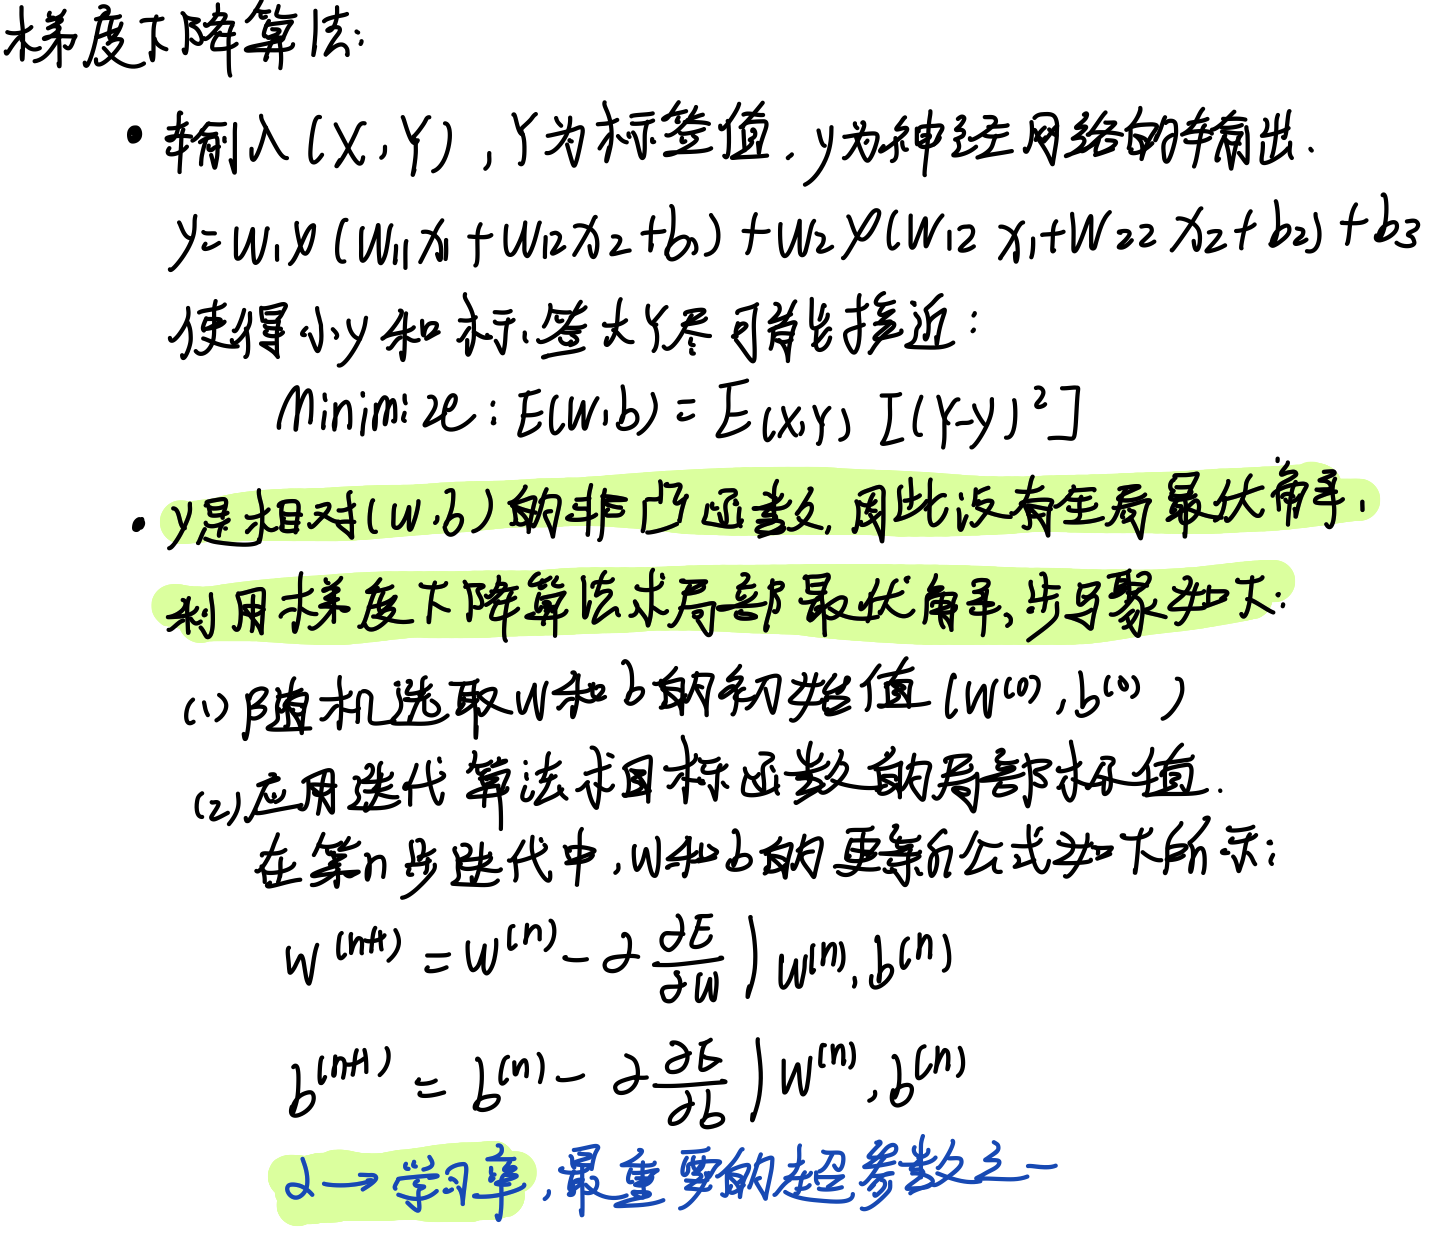 梯度下降算法:
• 输入(X,Y),Y为标签值.y为神经网络的输出.
y=w₁φ(w₁₁x₁+w₁₂x₂+b₁)+w₂φ(w₁₂x₁+w₂₂x₂+b₂)+b₃
使得小y和标签大Y尽可能接近:
Minimize:E(w,b)=E(X,Y)[(Y-y)²]
• y是相对(w,b)的非凸函数,因此没有全局最优解,
利用梯度下降算法求局部最优解,步骤如下:
(1)随机选取w和b的初始值(w⁽⁰⁾,b⁽⁰⁾)
(2)应用迭代算法求目标函数的局部极值.
在第n步迭代中,w和b的更新公式如下所示:
w⁽ⁿ⁺¹⁾=w⁽ⁿ⁾-α ∂E/∂w|w⁽ⁿ⁾,b⁽ⁿ⁾
b⁽ⁿ⁺¹⁾=b⁽ⁿ⁾-α ∂E/∂b|w⁽ⁿ⁾,b⁽ⁿ⁾
α→学习率,最重要的超参数之一